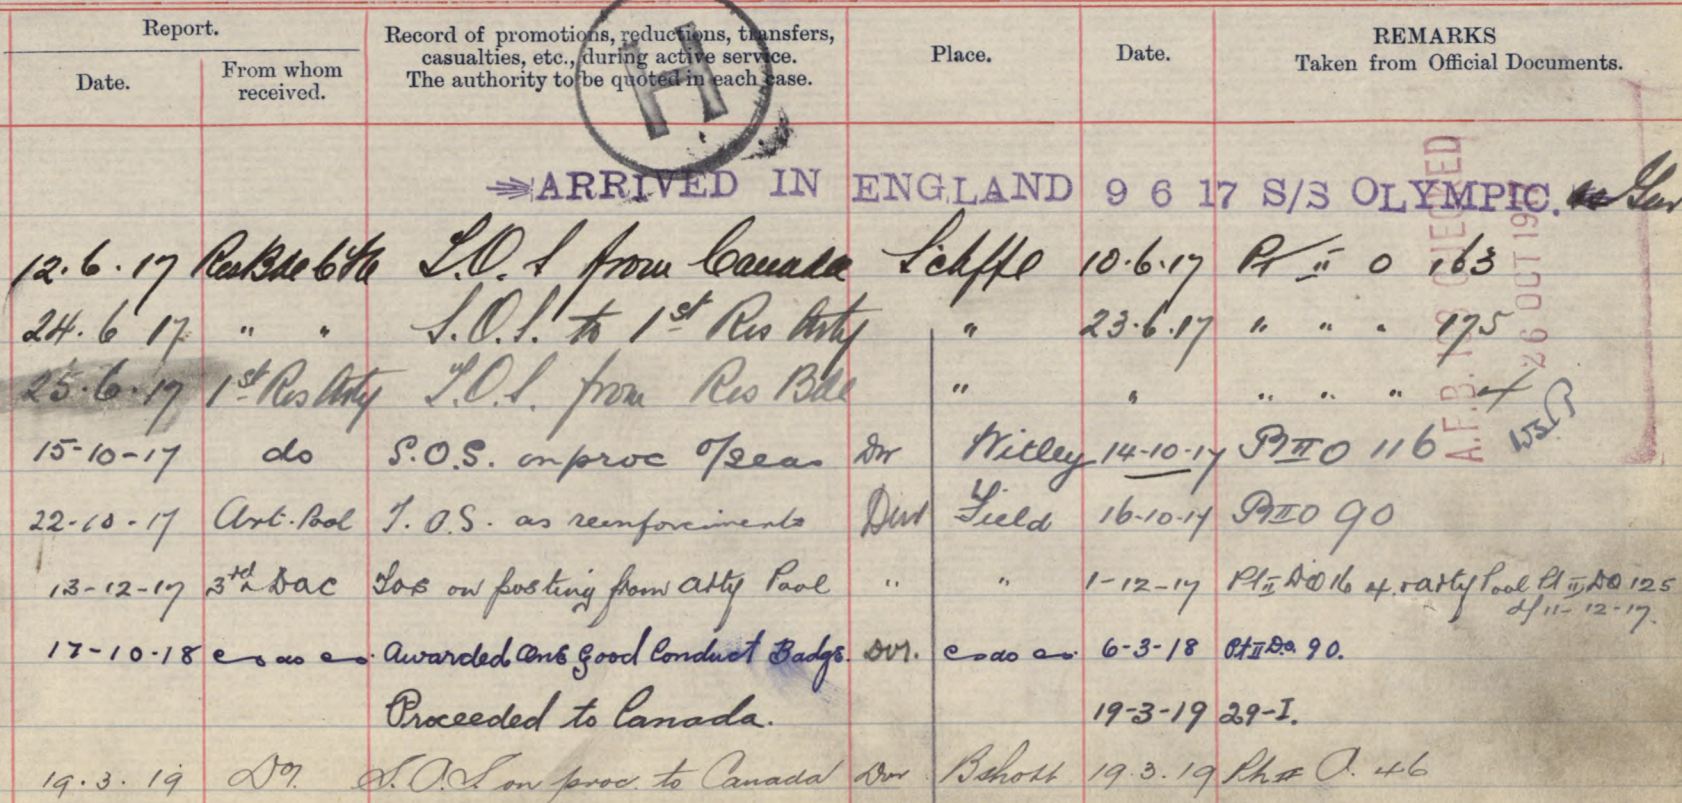 Report.
Record of promotions, reductions, transfers, casualties, etc., during active service. The authority to be quoted in each case.
Place.
Date.
REMARKS Taken from Official Documents.
Date.
From whom received.
H
ARRIVED IN ENGLAND 9 6 17 S/S OLYMPIC.
12.6.17 Res Bde T.O.S from Canada S'cliffe 10.6.17 Pt II O 163
24.6 17 " " S.O.S. to 1st Res Arty " 23.6.17 " " " 175
25.6.17 1st Res Arty T.O.S. from Res Bde " " " " " 4
15-10-17 do S.O.S. on proc o/seas Dvr Witley 14-10-17 Pt II O 116
22-10-17 Art. Pool T.O.S. as reinforcements Dvr Field 16-10-17 Pt II O 90
13-12-17 3rd DAC Tos on posting from Arty Pool " " 1-12-17 Pt II DO 16 & Arty Pool Pt II DO 125
d/11-12-17.
17-10-18 do Awarded One Good Conduct Badge. Dvr. do 6-3-18 Pt II Do. 90.
Proceeded to Canada. 19-3-19 29-I.
19.3.19 S.O.S on proc. to Canada Dvr Bshott 19.3.19 Pt II O. 46
A.F.B. 103 CHECKED
26 OCT 19